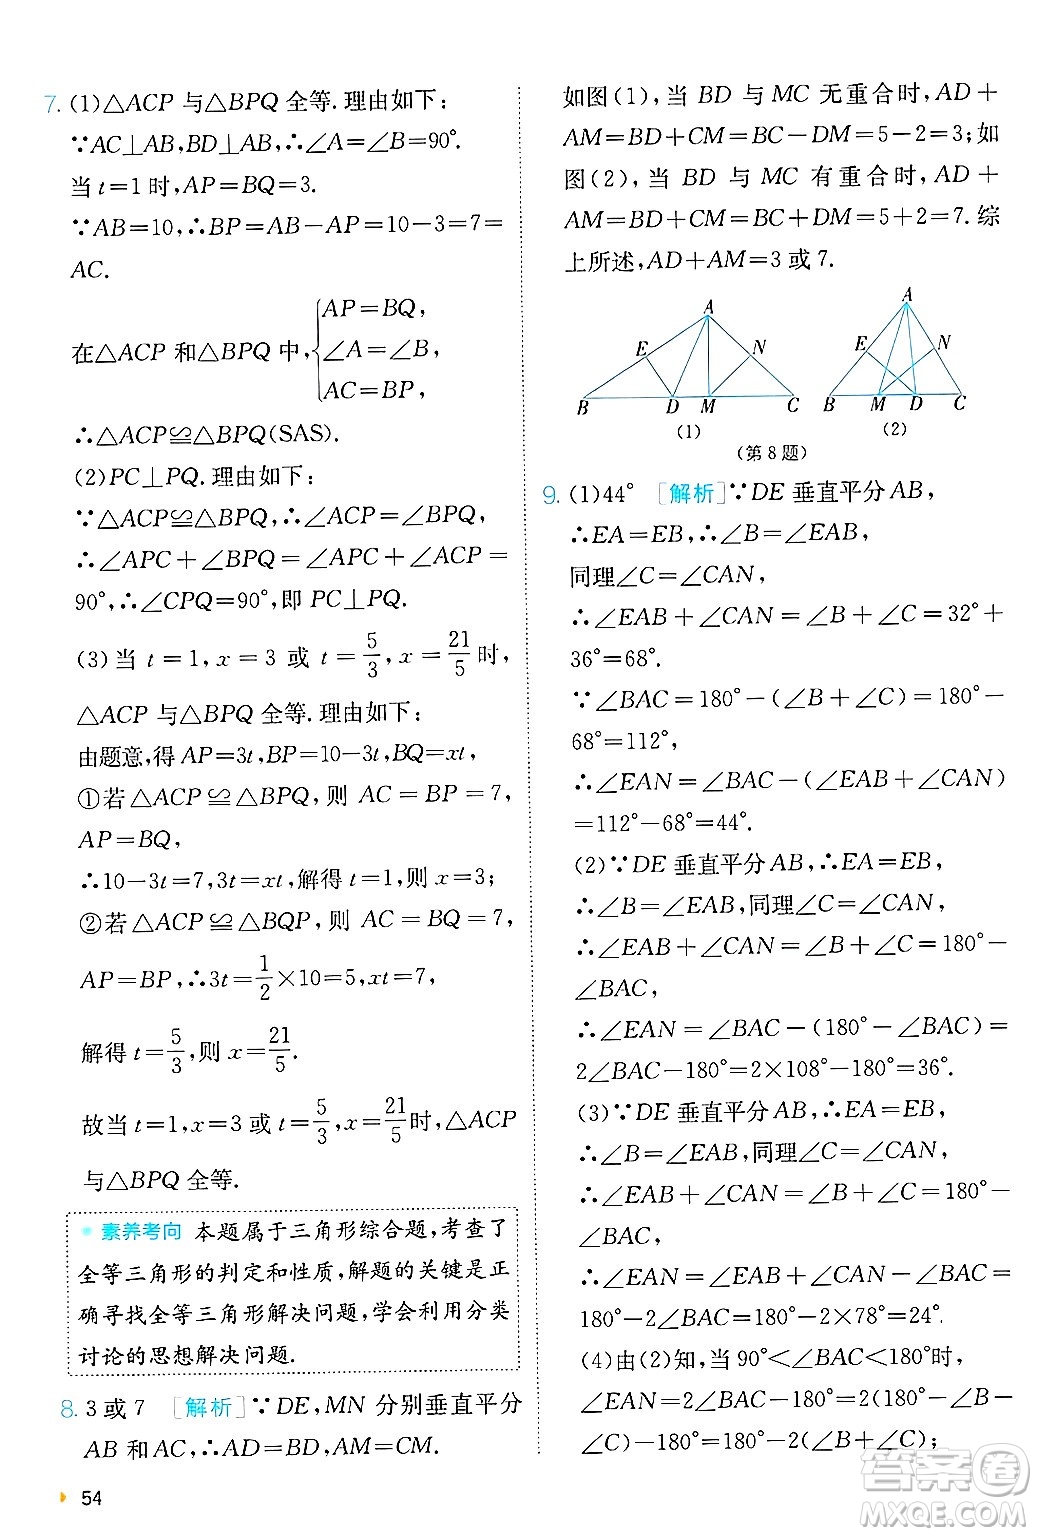 7. (1)△ACP 与△BPQ 全等.理由如下：
∵AC⊥AB,BD⊥AB,∴∠A=∠B=90°.
当 t=1 时,AP=BQ=3.
∵AB=10,∴BP=AB-AP=10-3=7=
AC.
AP=BQ,
在△ACP 和△BPQ 中,{∠A=∠B,
AC=BP,
∴△ACP≌△BPQ(SAS).
(2)PC⊥PQ.理由如下：
∵△ACP≌△BPQ,∴∠ACP=∠BPQ,
∴∠APC+∠BPQ=∠APC+∠ACP=
90°,∴∠CPQ=90°,即 PC⊥PQ.
(3)当 t=1,x=3 或 t=5/3,x=21/5时,
△ACP 与△BPQ 全等.理由如下：
由题意,得 AP=3t,BP=10-3t,BQ=xt,
①若△ACP≌△BPQ,则 AC=BP=7,
AP=BQ,
∴10-3t=7,3t=xt,解得 t=1,x=3;
②若△ACP≌△BQP,则 AC=BQ=7,
AP=BP,∴3t=1/2×10=5,xt=7,
解得 t=5/3,则 x=21/5.
故当 t=1,x=3 或 t=5/3,x=21/5时,△ACP
与△BPQ 全等.
素养考向 本题属于三角形综合题,考查了
全等三角形的判定和性质,解题的关键是正
确寻找全等三角形解决问题,学会利用分类
讨论的思想解决问题.
8. 3 或 7 [解析]∵DE,MN 分别垂直平分
AB 和 AC,∴AD=BD,AM=CM.
54
如图(1),当 BD 与 MC 无重合时,AD+
AM=BD+CM=BC-DM=5-2=3;如
图(2),当 BD 与 MC 有重合时,AD+
AM=BD+CM=BC+DM=5+2=7.综
上所述,AD+AM=3 或 7.
A
E N
B D M C
(1)
A
E N
B M D C
(2)
(第 8 题)
9. (1)44° [解析]∵DE 垂直平分 AB,
∴EA=EB,∴∠B=∠EAB,
同理∠C=∠CAN,
∴∠EAB+∠CAN=∠B+∠C=32°+
36°=68°.
∵∠BAC=180°-(∠B+∠C)=180°-
68°=112°,
∴∠EAN=∠BAC-(∠EAB+∠CAN)
=112°-68°=44°.
(2)∵DE 垂直平分 AB,∴EA=EB,
∴∠B=∠EAB,同理∠C=∠CAN,
∴∠EAB+∠CAN=∠B+∠C=180°-
∠BAC,
∴∠EAN=∠BAC-(180°-∠BAC)=
2∠BAC-180°=2×108°-180°=36°.
(3)∵DE 垂直平分 AB,∴EA=EB,
∴∠B=∠EAB,同理∠C=∠CAN,
∴∠EAB+∠CAN=∠B+∠C=180°-
∠BAC,
∴∠EAN=∠EAB+∠CAN-∠BAC=
180°-2∠BAC=180°-2×78°=24°.
(4)由(2)知,当 90°<∠BAC<180°时,
∠EAN=2∠BAC-180°=2(180°-∠B-
∠C)-180°=180°-2(∠B+∠C);
答案圈
MXQE.COM